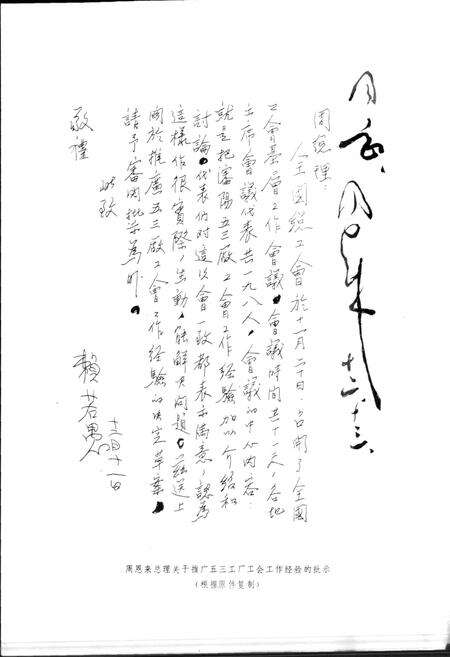 同意。周恩来
十二、十三、
周總理：
全國總工會於十一月二十日，召開了全國
工會基層工作會議。會議時間共十一天，各地
出席會議代表共一九八人，會議的中心內容：
就是把瀋陽五三廠工會工作經驗加以介紹和
討論。代表們對這次會一致都表示滿意，認為
這樣作很實際，生動，能解決問題。茲送上
關於推廣五三廠工會工作經驗的決定草案。
請予審閱批示為盼。
此致
敬禮
賴若愚
十二月十一日
周恩来总理关于推广五三工厂工会工作经验的批示
（根据原件复制）